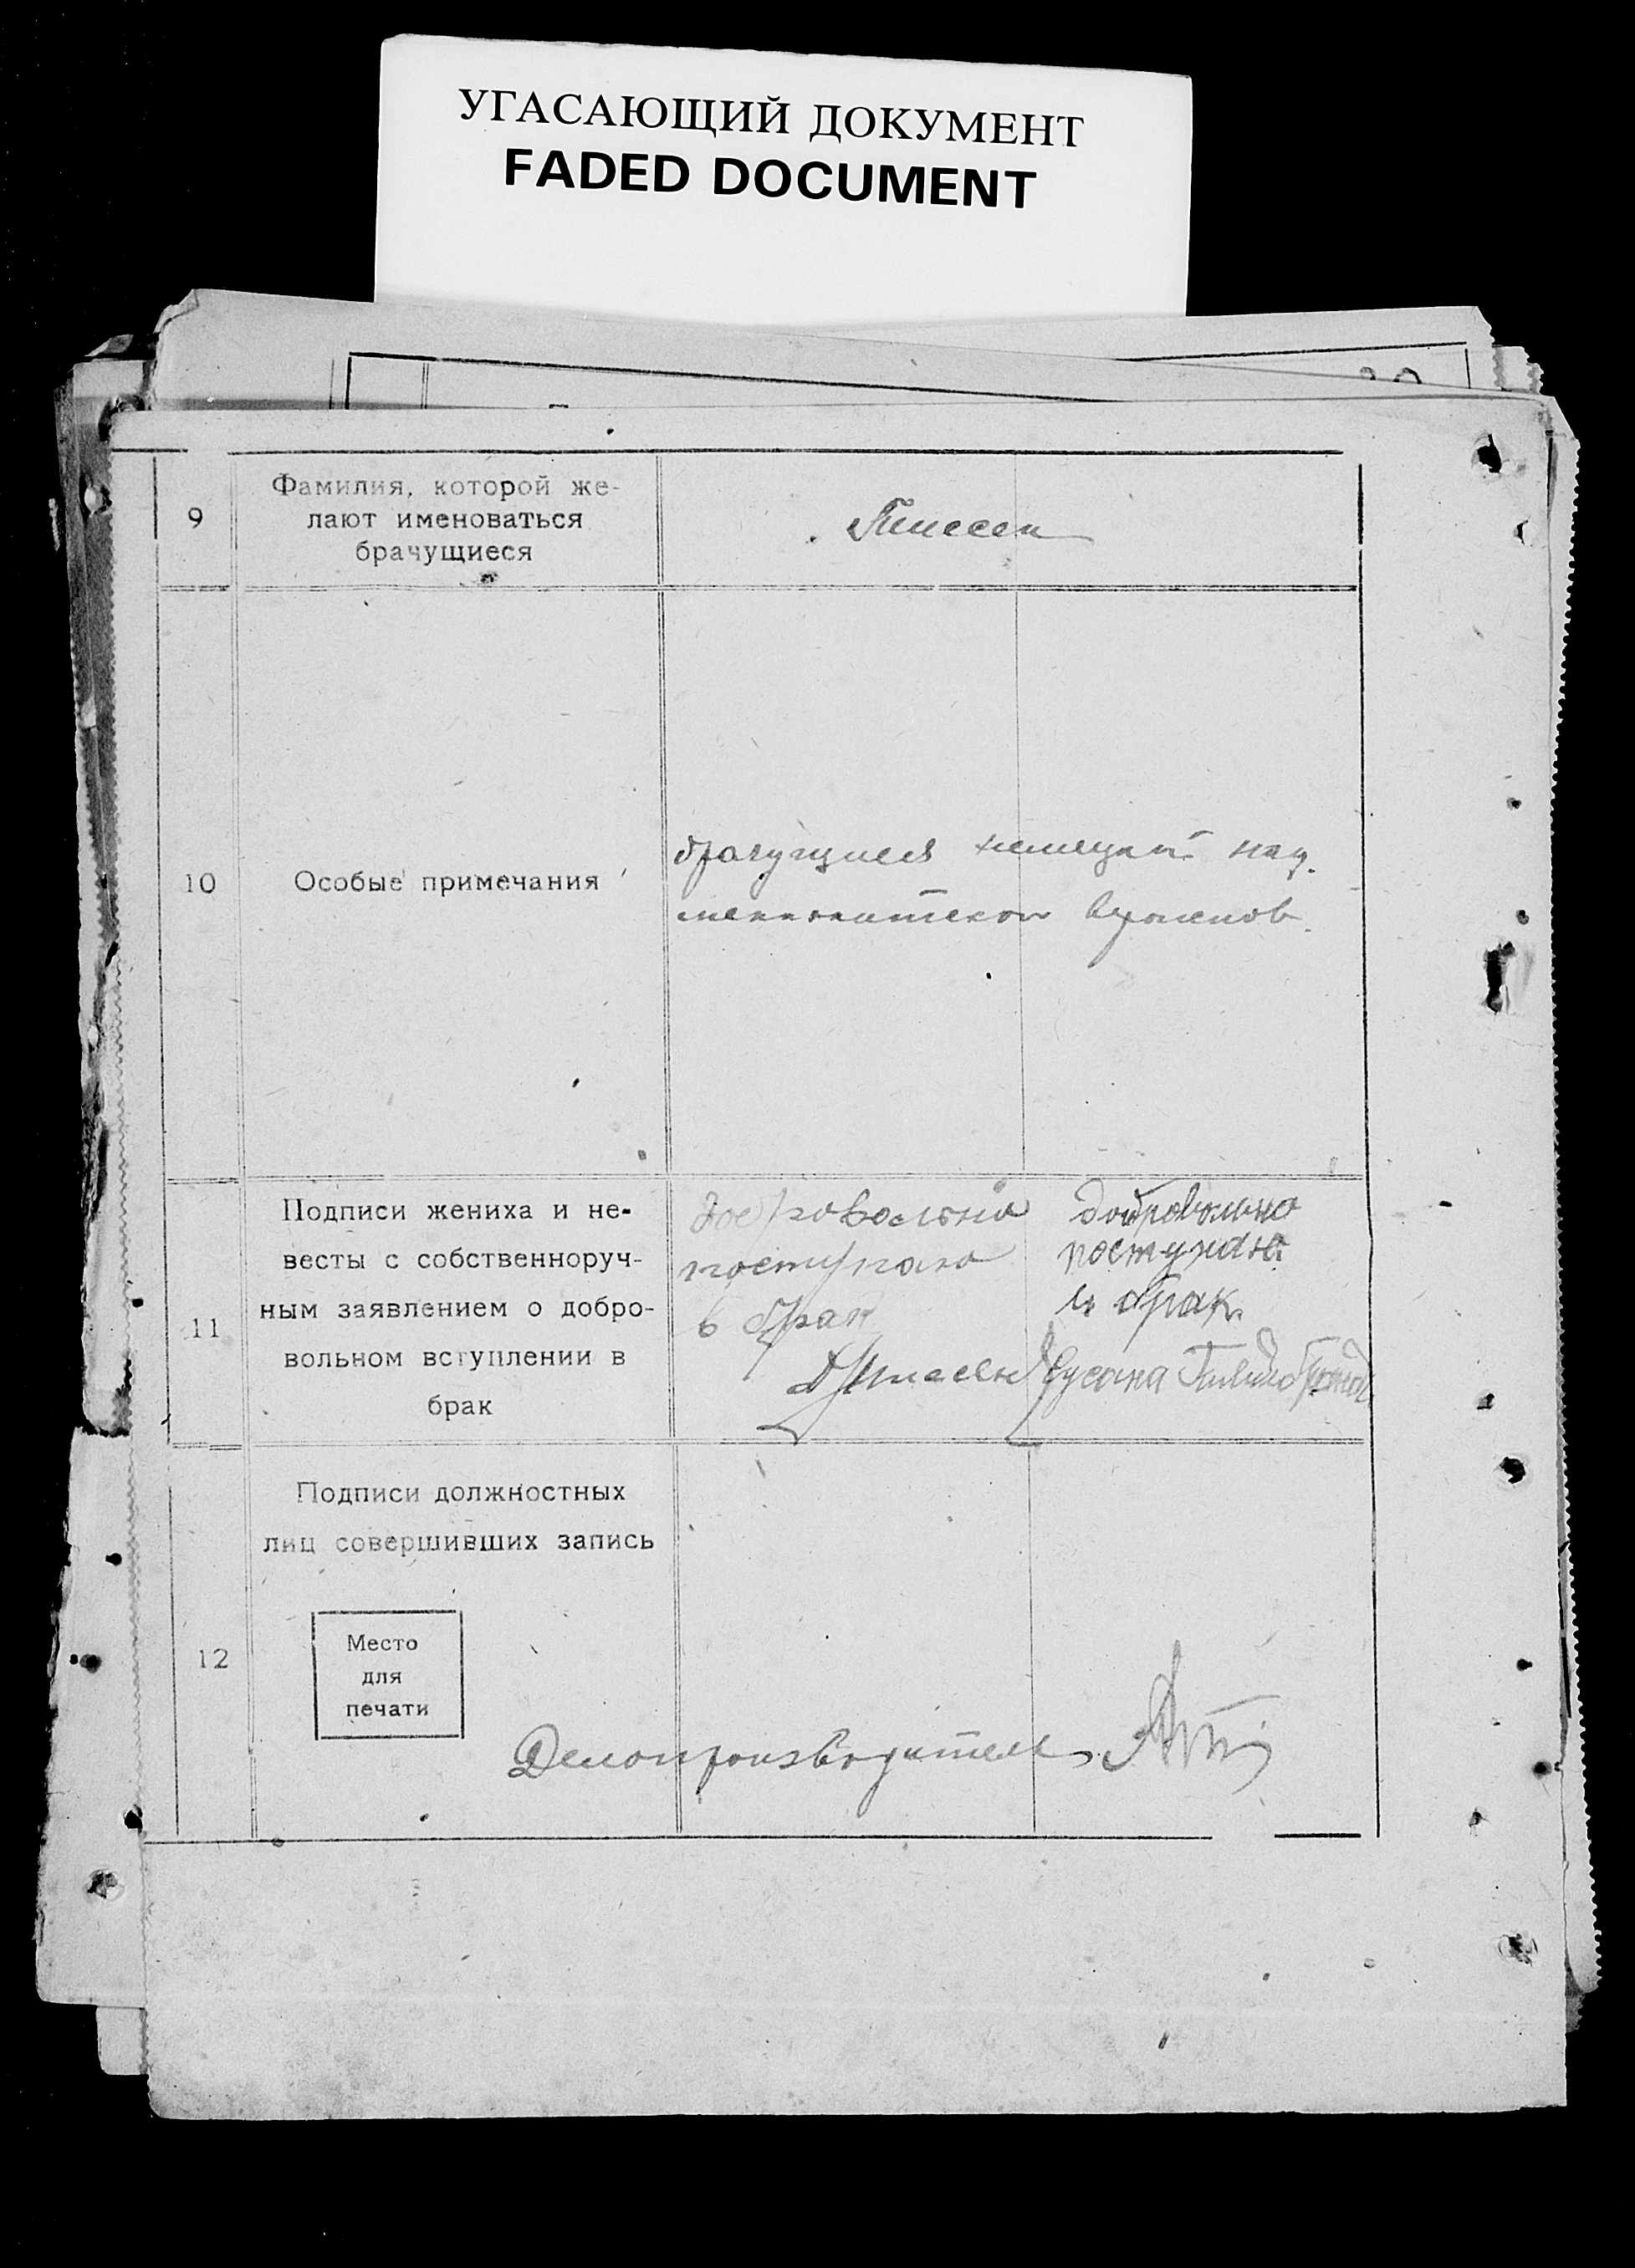 УГАСАЮЩИЙ ДОКУМЕНТ
FADED DOCUMENT
9
Фамилия, которой же-
лают именоваться
брачущиеся
Тиссен
10
Особые примечания
брачущиеся немецкой нац.
меннонитской
11
Подписи жениха и не-
весты с собственноруч-
ным заявлением о добро-
вольном вступлении в
брак
добровольно
поступаю
в брак
Тиссен
добровольно
поступаю
в брак
Сусана
12
Подписи должностных
лиц совершивших запись
Место
для
печати
Делопроизводитель